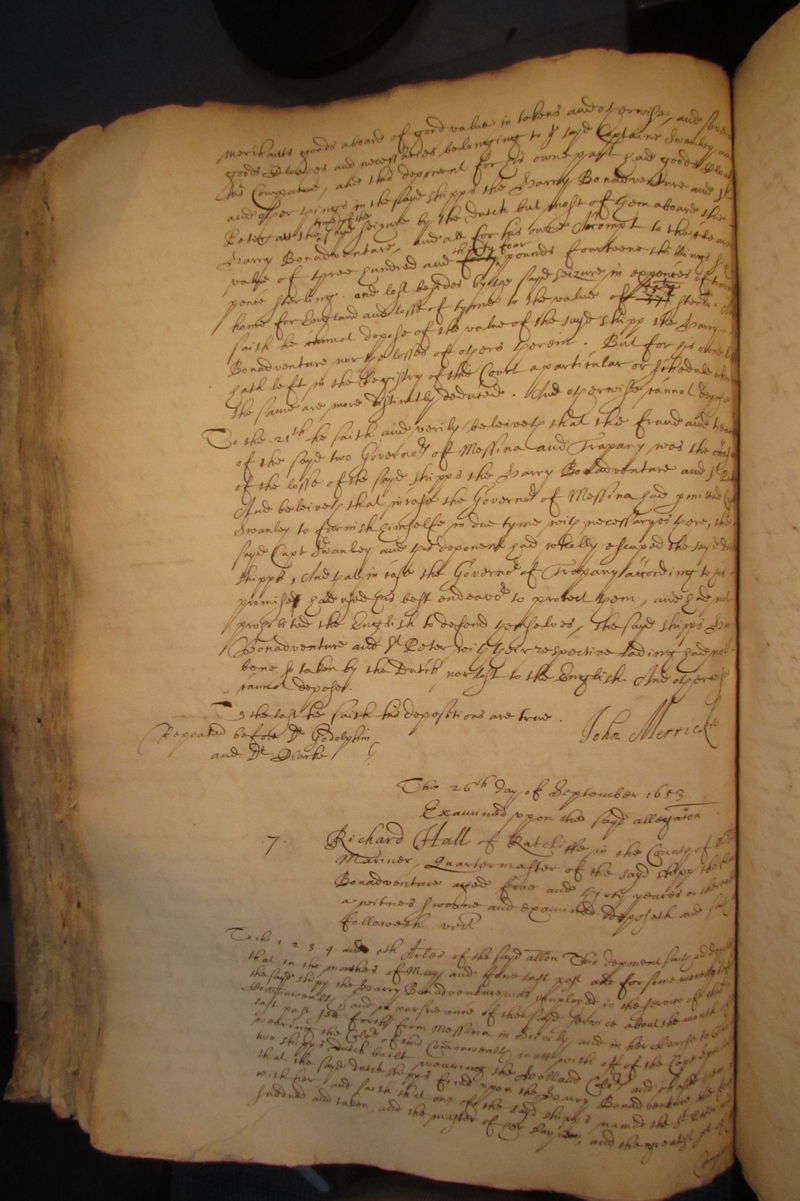 merchants goods aboard of good value in tokens and otherwise, and
goods Cloathes and necessaries belonging to the sayd Captaine Swanley and
his Companie, and this deponent for his owne part had goods
and other things in the sayd shipps the Harry Bonadventure and St
Peter at the tyme of the sayd seizure by the Dutch but most of them aboard the
Harry Bonadventure, and all for his owne Accompt to the cleare
value of three hundred and thirty four pounds fourteene shillings
pence sterling. and lost besides by the sayd seizure in expences of
home for England and losse of tyme to the value of sterl.
saith he cannot depose of the value of the sayd shipp the Harry
Bonadventure nor the losses of others therein. But for his owne
hath left in the Registry of this Court a particular or schedule
the same are more distinctly deduced. And otherwise cannot depose
To the 21th he saith and verily beleiveth that the fraud and
of the sayd two Governors of Messina and Trapany was the
of the losse of the sayd shipps the Harry Bonadventure and St
And beleiveth that in case the Governor of Messina had permitted
Swanley to furnish himselfe in due tyme with necessaryes there, the
sayd Capt Swanley and this deponent had wholly escaped the sayd
shipps, And that in case the Governor of Trapany according to his
promises had used his best endeavor to protect them, and had not
prohibited the English to defend themselves, the sayd shipps
Bonadventure and St Peter with their respective lading had not
bene so taken by the Dutch nor lost to the English. And otherwise
cannot depose.
To the last he saith his depositions are true.
Repeated before Dr Godolphin
and Dr Clarke
John Merricke
The 26th day of September 1653
Examined upon the sayd allegation
7. Richard Hall of Ratcliffe in the County of
Mariner, Quartermaster of the sayd shipp the
Bonadventure aged five and thirty yeares or thereabouts
a witnes sworne and examined deposeth and saith
followeth vizt
To the 1 2 3 4 and 5th Artles of the sayd allon This deponent saith and deposeth
that in the moneths of May and June last past and for some
the sayd shipp the Harry Bonadventure was employed in the service of this
Commonwealth, and in pursueance of the sayd service about the month of
last past sett forth from Messina in Sicily and in her Course to
wearing the Colors of this Commonwealth mett with off of the Cape
two shipps Dutch built wearing the Holland Colors and
that the sayd Dutch shipps fired upon the Harry Bonadventure
with her and saith that one of the sayd shipps named the St Peter
subdued and taken, and the master of her slayne, and the greatest pt of